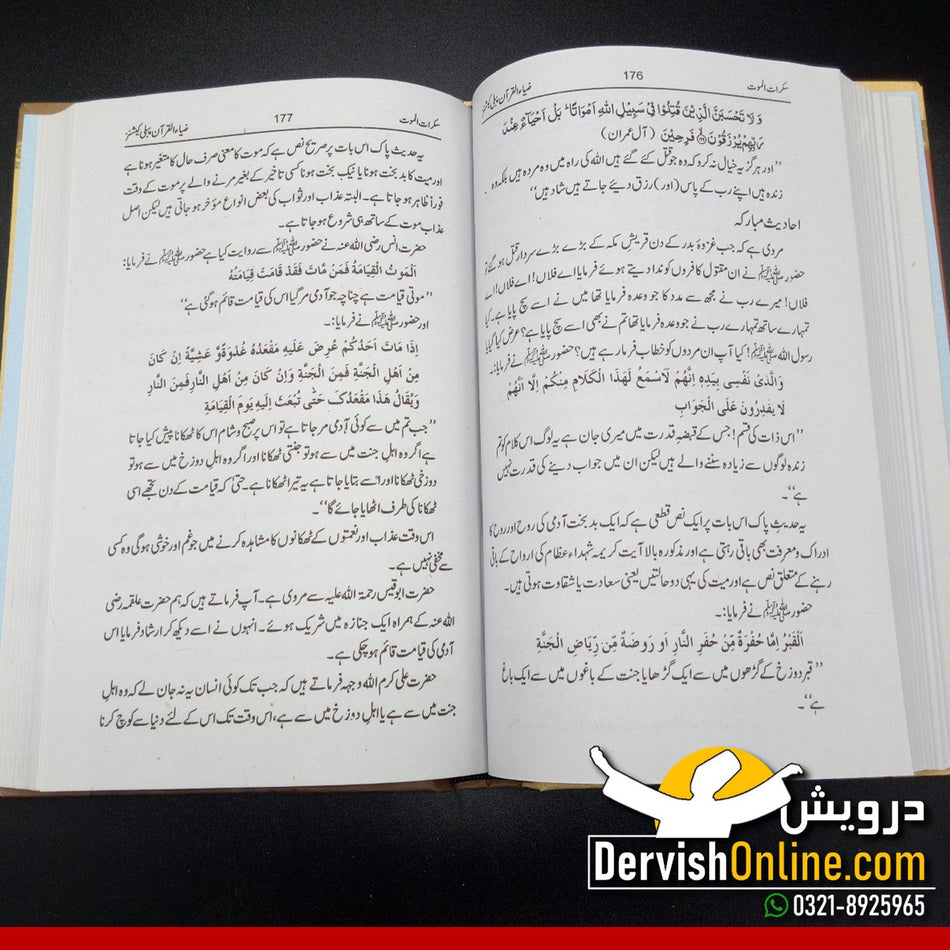 سکرات الموت 176 ضیاء القرآن پبلی کیشنز
وَلَا تَحْسَبَنَّ الَّذِيْنَ قُتِلُوْا فِيْ سَبِيْلِ اللّٰهِ اَمْوَاتًا ؕ بَلْ اَحْيَآءٌ عِنْدَ
رَبِّهِمْ يُرْزَقُوْنَ فَرِحِيْنَ (آل عمران)
’’اور ہرگز یہ خیال نہ کرو کہ وہ جو قتل کئے گئے ہیں اللہ کی راہ میں وہ مردہ ہیں بلکہ وہ
زندہ ہیں اپنے رب کے پاس (اور) رزق دیئے جاتے ہیں شاد ہیں‘‘
احادیث مبارکہ
مروی ہے کہ جب غزوۂ بدر کے دن قریش مکہ کے بڑے بڑے سردار قتل ہو گئے تو
حضور ﷺ نے ان مقتول کافروں کو ندا دیتے ہوئے فرمایا اے فلاں! اے فلاں! اے
فلاں! میرے رب نے مجھ سے مدد کا جو وعدہ فرمایا تھا میں نے اسے سچ پایا ہے۔ کیا
تمہارے ساتھ تمہارے رب نے جو وعدہ فرمایا تھا تم نے بھی اسے سچ پایا ہے؟ عرض کیا گیا یا
رسول اللہ ﷺ! کیا آپ ان مردوں کو خطاب فرما رہے ہیں؟ حضور ﷺ نے فرمایا:۔
وَالَّذِیْ نَفْسِی بِیَدِهٖ اِنَّهُمْ لَاَسْمَعُ لِهٰذَا الْكَلَامِ مِنْكُمْ اِلَّا اَنَّهُمْ
لَا یَقْدِرُوْنَ عَلَی الْجَوَابِ
’’اس ذات کی قسم! جس کے قبضہ قدرت میں میری جان ہے یہ لوگ اس کلام کو تم
زندہ لوگوں سے زیادہ سننے والے ہیں لیکن ان میں جواب دینے کی قدرت نہیں
ہے‘‘۔
یہ حدیث پاک اس بات پر ایک نص قطعی ہے کہ ایک بد بخت آدمی کی روح اور روح کا
ادراک و معرفت بھی باقی رہتی ہے اور مذکورہ بالا آیت کریمہ شہداء عظام کی ارواح کے باقی
رہنے کے متعلق نص ہے اور میت کی یہی دو حالتیں یعنی سعادت یا شقاوت ہوتی ہیں۔
حضور ﷺ نے فرمایا:۔
اَلْقَبْرُ اِمَّا حُفْرَةٌ مِّنْ حُفَرِ النَّارِ اَو رَوضَةٌ مِّن رِّیَاضِ الْجَنَّةِ
’’قبر دوزخ کے گڑھوں میں سے ایک گڑھا یا جنت کے باغوں میں سے ایک باغ
ہے‘‘۔
سکرات الموت 177 ضیاء القرآن پبلی کیشنز
یہ حدیث پاک اس بات پر صریح نص ہے کہ موت کا معنی صرف حال کا متغیر ہونا ہے
اور میت کا بد بخت ہونا یا نیک بخت ہونا کسی تاخیر کے بغیر مرنے والے پر موت کے وقت
فوراً ظاہر ہو جاتا ہے۔ البتہ عذاب اور ثواب کی بعض انواع مؤخر ہو جاتی ہیں لیکن اصل
عذاب موت کے ساتھ ہی شروع ہو جاتا ہے۔
حضرت انس رضی اللہ عنہ نے حضور ﷺ سے روایت کیا ہے حضور ﷺ نے فرمایا:
اَلْمَوْتُ الْقِیَامَةُ فَمَنْ مَّاتَ فَقَدْ قَامَتْ قِیَامَتُهٗ
’’موتی قیامت ہے چنانچہ جو آدمی مر گیا اس کی قیامت قائم ہو گئی ہے‘‘
اور حضور ﷺ نے فرمایا:۔
اِذَا مَاتَ اَحَدُكُمْ عُرِضَ عَلَیْهِ مَقْعَدُهٗ غُدَوَةً وَّ عَشِیَّةً اِنْ كَانَ
مِنْ اَهْلِ الْجَنَّةِ فَمِنَ الْجَنَّةِ وَاِنْ كَانَ مِنْ اَهْلِ النَّارِ فَمِنَ النَّارِ
وَیُقَالُ هٰذَا مَقْعَدُکَ حَتّٰی تُبْعَثَ اِلَیْهِ یَومَ الْقِیَامَةِ
’’جب تم میں سے کوئی آدمی مر جاتا ہے تو اس پر صبح و شام اس کا ٹھکانا پیش کیا جاتا
ہے اگر وہ اہل جنت میں سے ہو تو جنتی ٹھکانا اور اگر وہ اہل دوزخ میں سے ہو تو
دوزخی ٹھکانا اور اسے بتایا جاتا ہے یہ تیرا ٹھکانا ہے۔ حتیٰ کہ قیامت کے دن تجھے اسی
ٹھکانا کی طرف اٹھایا جائے گا‘‘۔
اس وقت عذاب اور نعمتوں کے ٹھکانوں کا مشاہدہ کرنے میں جو غم اور خوشی ہو گی وہ کسی
سے مخفی نہیں ہے۔
حضرت ابو قیس رحمۃ اللہ علیہ سے مروی ہے۔ آپ فرماتے ہیں کہ ہم حضرت علقمہ رضی
اللہ عنہ کے ہمراہ ایک جنازہ میں شریک ہوئے۔ انہوں نے اسے دیکھ کر ارشاد فرمایا اس
آدمی کی قیامت قائم ہو چکی ہے۔
حضرت علی کرم اللہ وجہہ فرماتے ہیں کہ جب تک کوئی انسان یہ نہ جان لے کہ وہ اہل
جنت میں سے ہے یا اہل دوزخ میں سے ہے، اس وقت تک اس کے لئے دنیا سے کوچ کرنا
درویش
DervishOnline.com
0321-8925965